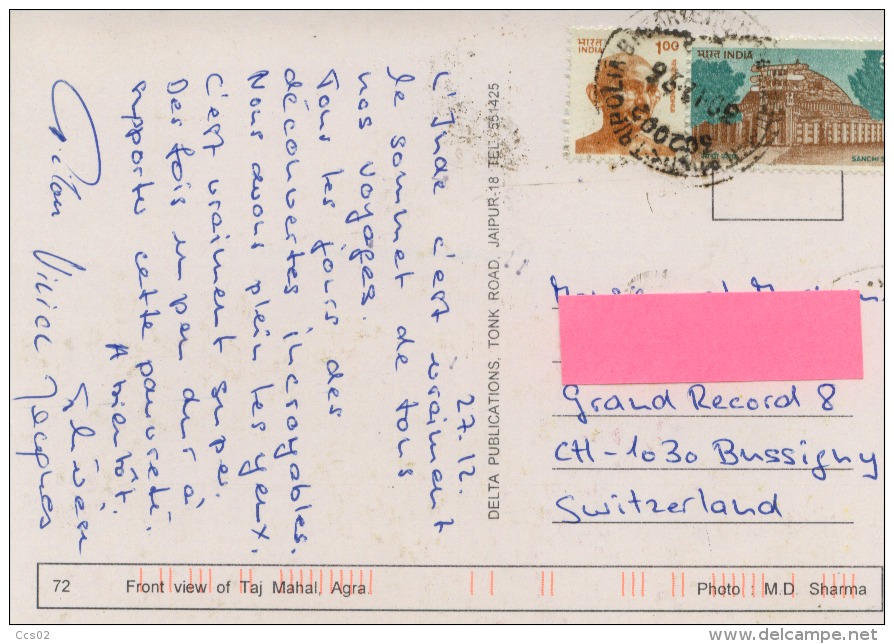 27.12.
L'Inde c'est vraiment
le sommet de tous
nos voyages.
Tous les jours des
découvertes incroyables.
Nous avons plein les yeux.
C'est vraiment super.
Des fois un peu dur à
supporter cette pauvreté.
A bientôt.
Jacques
DELTA PUBLICATIONS, TONK ROAD, JAIPUR-18 TEL : 551425
भारत INDIA
1.00
भारत INDIA
SANCHI S
TRIPOLIA
302002
Grand Record 8
CH-1030 Bussigny
Switzerland
72 Front view of Taj Mahal, Agra. Photo : M.D. Sharma
Ccs02
www.delcampe.net